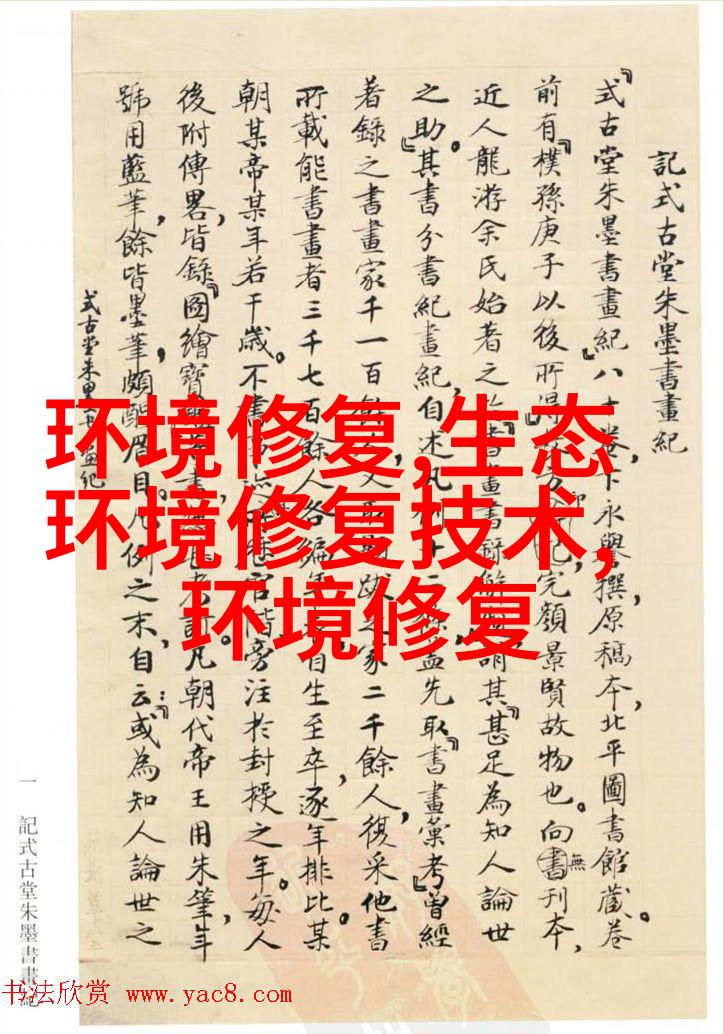 記式古堂朱墨書畫紀
『式古堂朱墨書畫紀』八十卷,卞永譽撰,原稿本,北平圖書館藏。卷
前有『樸孫庚子以後所得
完顏景賢故物也。向無刊本,
近人龍游余氏始著之
書畫書
其『甚足為知人論世
之助。』其書分書紀畫紀,自述凡例十二條,蓋先取『書畫彙考』曾經
著錄之書畫家千一百餘人,又
家二千餘人,復采他書
所載能書畫者三千七百餘人,各編年
自生至卒,逐年排比,某
朝某帝某年若干歲。不書事迹,
官階旁注於封授之年。每人
後附傳畧,皆錄『圖繪寶鑑
凡朝代帝王用朱筆,年
號用藍筆,餘皆墨筆,頗醒眉目。凡例之末,自云:『或為知人論世之
式古堂朱墨書畫紀
一 記式古堂朱墨書畫紀
环境修复,生态
环境修复技术,
环境修复
书法欣赏 www.yac8.com